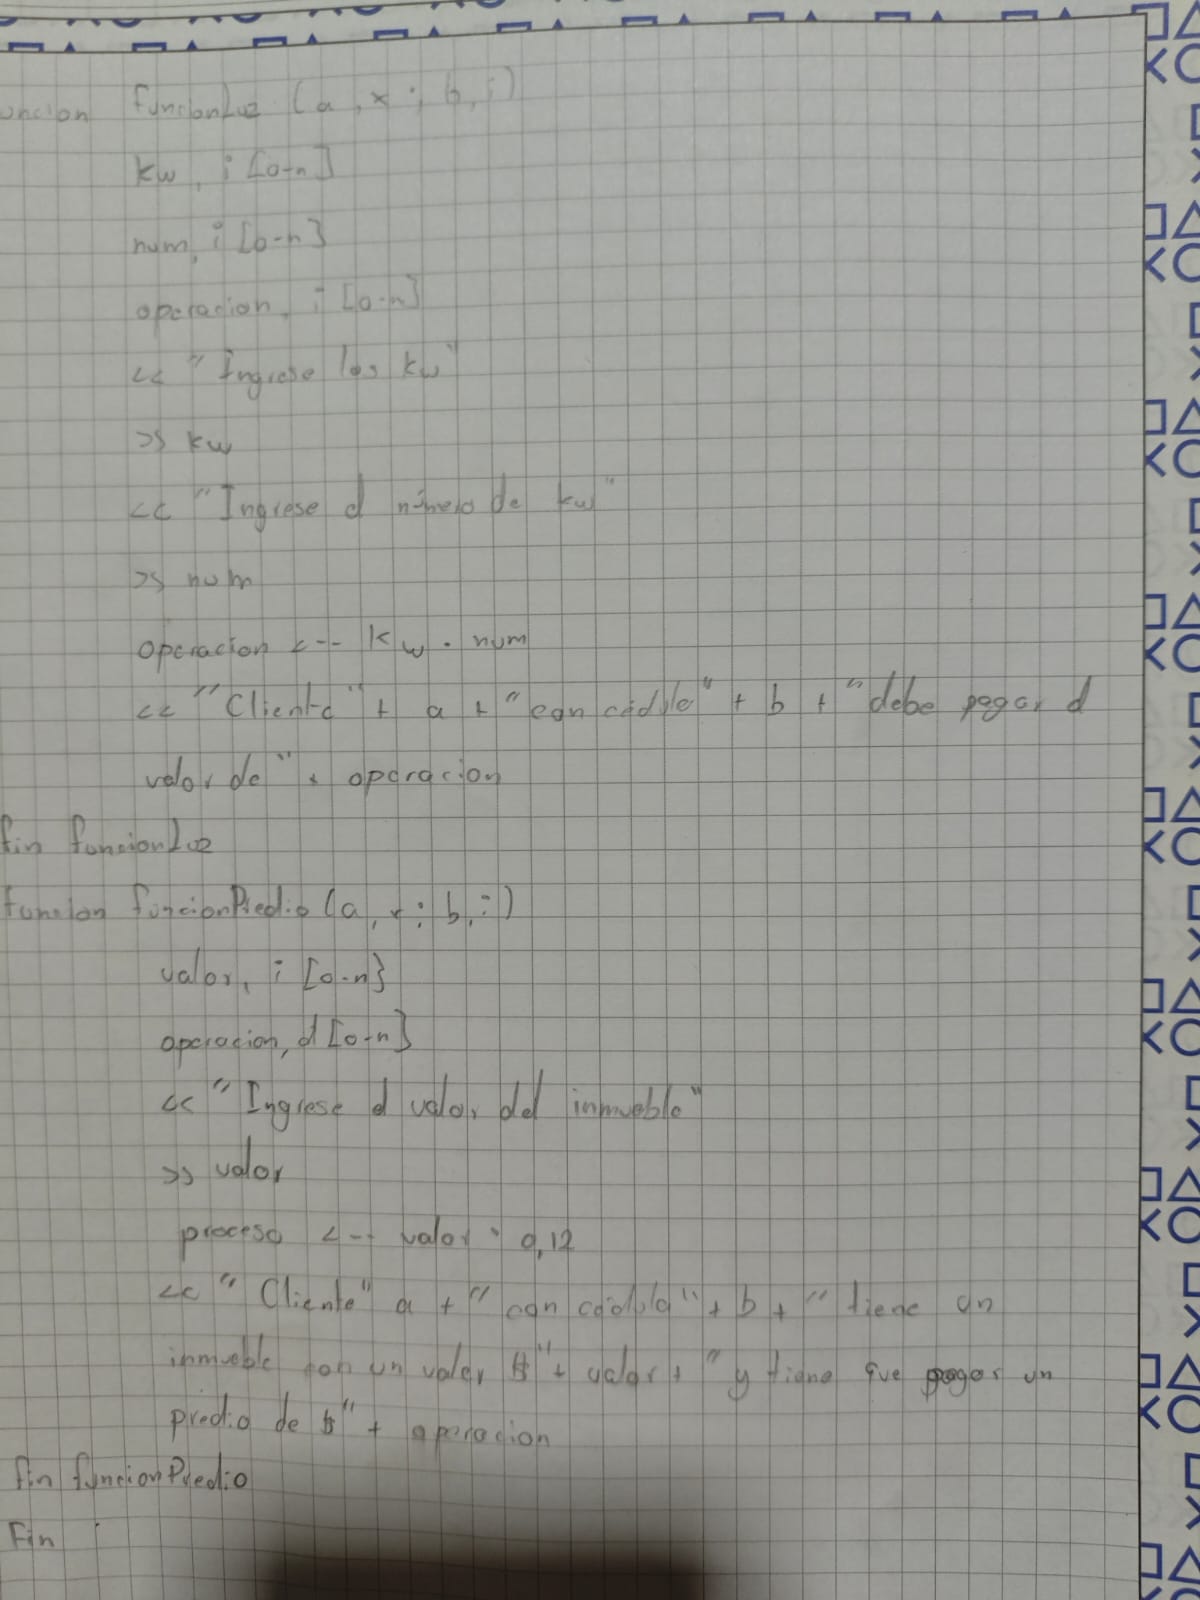 uncion funcionLuz (a, x; b, i)
kw, i [0-n]
num, i [0-n]
operacion, i [0-n]
<< "Ingrese los kw"
>> kw
<< "Ingrese el número de kw"
>> num
operacion <-- kw . num
<< "Cliente" + a + "con cédula" + b + "debe pagar el
valor de" + operacion
fin funcionLuz
funcion funcionPredio (a, x; b, i)
valor, i [0-n]
operacion, d [0-n]
<< "Ingrese el valor del inmueble"
>> valor
proceso <-- valor · 0,12
<< "Cliente" a + "con cédula" + b + "tiene un
inmueble con un valor $" + valor + "y tiene que pagar un
predio de $" + operacion
fin funcionPredio
Fin